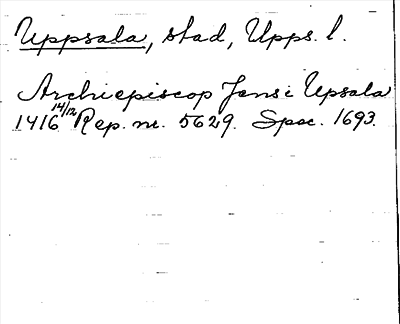 Uppsala, stad, Upps. l.
Archiepiscop Jens i Upsala
1416 14/12 Rep. nr. 5629. Spec. 1693.